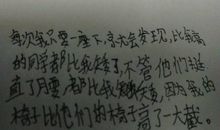 每次我只要一座下,令大会发现,比我高
的同学都比我矮了,不管他们挺
直了月要,都比我矮矮,因为我的
椅子比他们的椅子高了一大截。